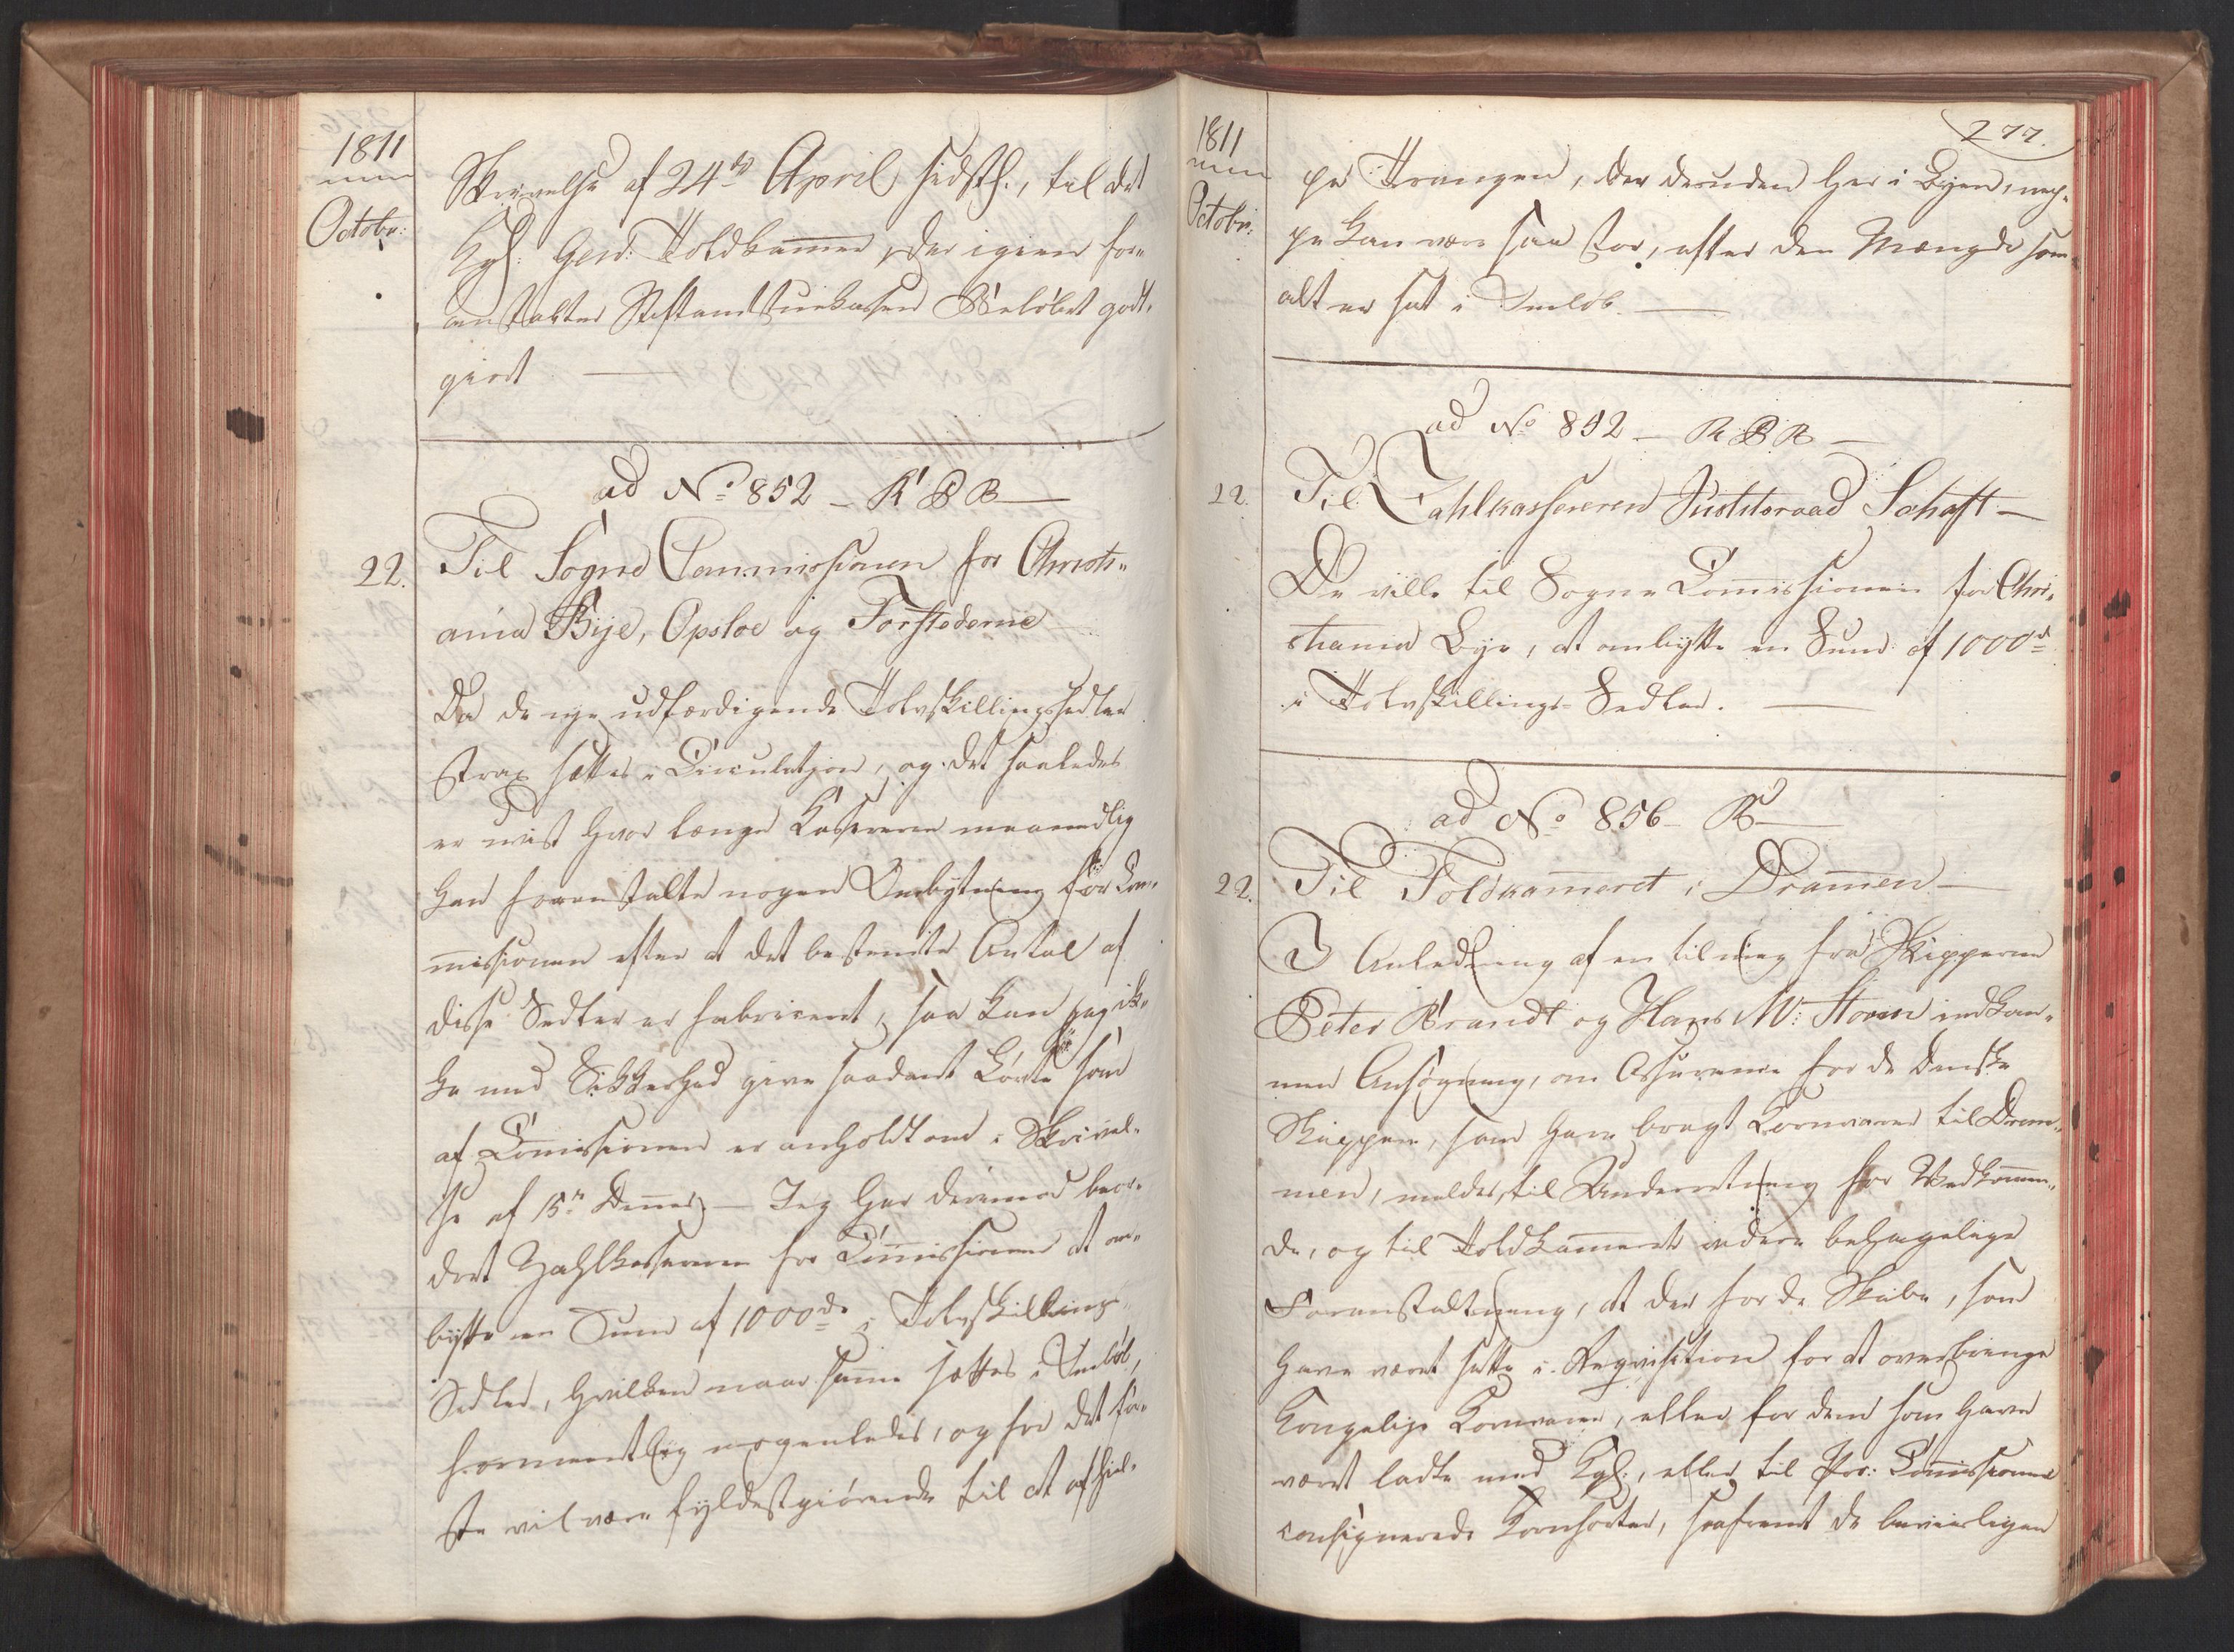 1811
Octobr:
Skrivelse af 24de April sidstl:, til det
Kgl: Genr: Toldkammer, der igien for-
anstalter Stiftamtstuekassen Beløbet godt-
giort
ad No 852 - R B B
22. Til Sogne Commissionen for Christi-
ania Bye, Opsloe og Forstæderne
Da de nye udfærdigende Tolvskillingssedler
strax sættes i Circulation, og det saaledes
er uvist hvor længe Kassereren maanedlig
kan foranstalte nogen Ombytning for Com-
missionen efter at det bestemte Antal af
disse Sedler er fabriceret, saa kan jeg ik-
ke med Sikkerhed give saadant Løfte som
af Commissionen er anholdt om i Skrivel-
se af 15de Dennes. - Jeg har derimod beor-
dret Zahlkassereren for Commissionen at om-
bytte en Sum af 1000 rd i Tolvskillings-
Sedler, hvilken naar samme sættes i Omløb,
formentlig nogenledes, og for det før-
ste vil være fyldestgiørende til at afhiel-
1811
Octobr:
277.
pe Trangen, der desuden her i Byen, nep-
pe kan være saa stor, efter den Mængde som
alt er sat i Omløb.
ad No 852 - R B B
22. Til Zahlkassereren Justitsraad Schaft
De ville til Sogne Commissionen for Chri-
stiania Bye, at ombytte en Sum af 1000 rd
i Tolvskillings-Sedler.
ad No 856 - R
22. Til Toldkammeret i Drammen
I Anledning af en til mig fra Skipperne
Peter Brandt og Hans M: Storm indkom-
men Ansøgning, om Assurance for de danske
Skippere, som have bragt Kornvarer til Dram-
men, meldes, til Underretning for Vedkommen-
de, og til Toldkammerets videre behagelige
Foranstaltning, at der for de Skibe, som
have været satte i Reqvisition for at overbringe
Kongelige Kornvarer, eller for dem som have
været ladte med Kgl:, eller til Pro: Commissionen
consignerede Kornsorter, saafremt de beviisligen